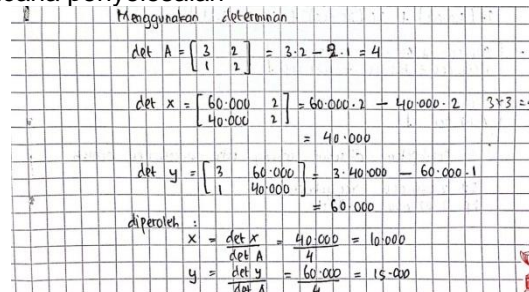 Menggunakan determinan
det A = [ 3 2 ] = 3·2 - 2·1 = 4
[ 1 2 ]
det x = [ 60·000 2 ] = 60·000·2 - 40·000·2
[ 40·000 2 ]
= 40·000
det y = [ 3 60·000 ] = 3·40·000 - 60·000·1
[ 1 40·000 ]
= 60·000
diperoleh :
x = det x / det A = 40·000 / 4 = 10·000
y = det y / det A = 60·000 / 4 = 15·000